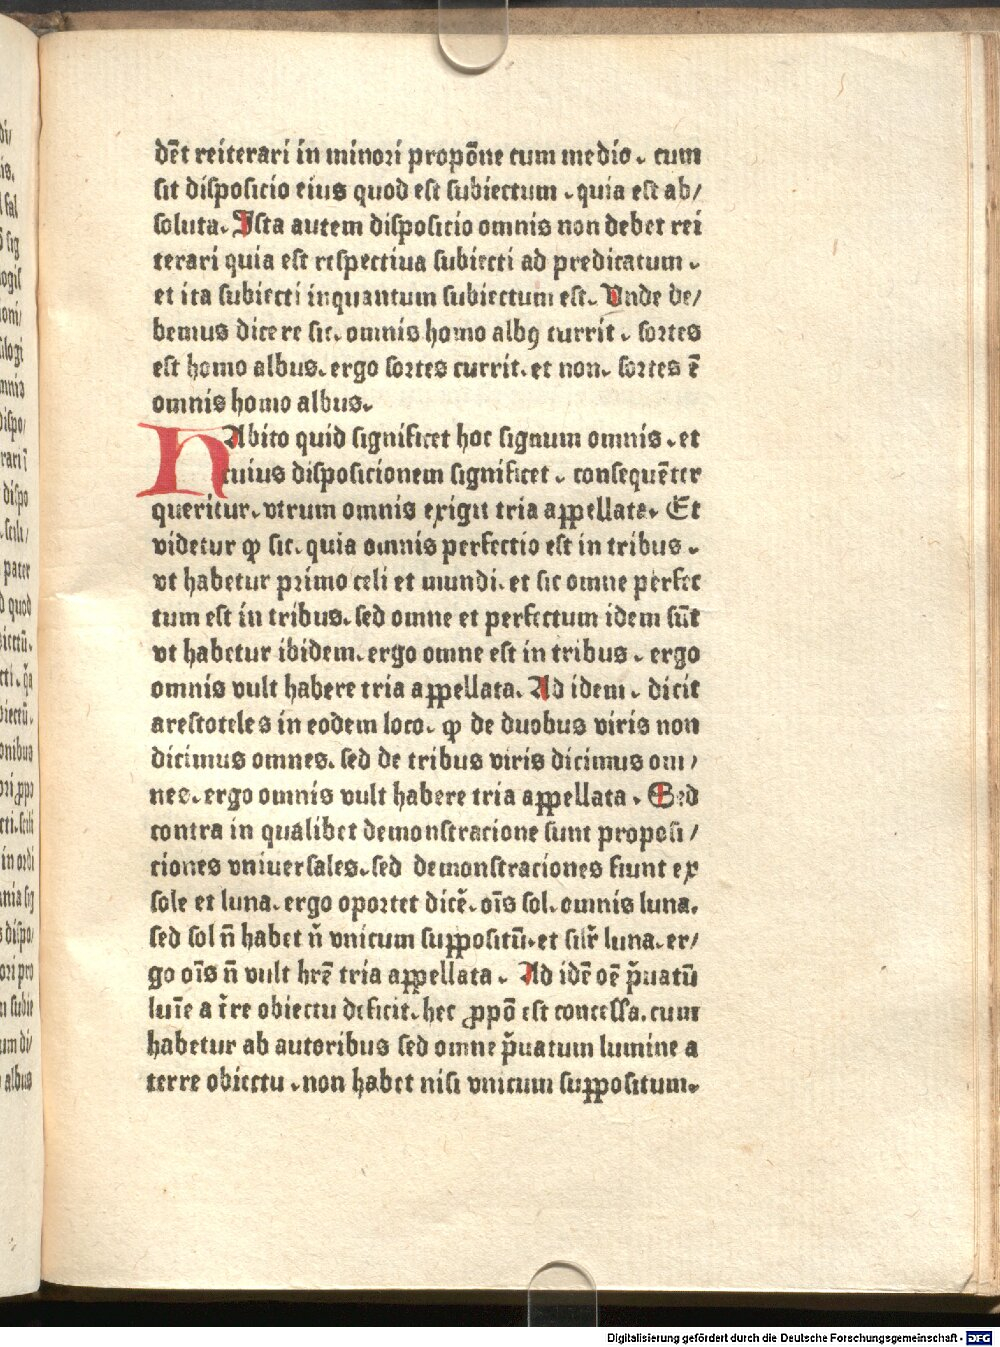 dēt reiterari in minori propōne cum medio. cum
sit disposicio eius quod est subiectum. quia est ab/
soluta. Ista autem disposicio omnis non debet rei
terari quia est respectiua subiecti ad predicatum.
et ita subiecti inquantum subiectum est. Unde de/
bemus dicere sic. omnis homo albꝰ currit. sortes
est homo albus. ergo sortes currit. et non. sortes ē
omnis homo albus.
HAbito quid significet hoc signum omnis. et
cuius disposicionem significet. consequēter
queritur. vtrum omnis exigit tria appellata. Et
videtur ꝙ sic. quia omnis perfectio est in tribus.
vt habetur primo celi et mundi. et sic omne perfec
tum est in tribus. sed omne et perfectum idem sūt
vt habetur ibidem. ergo omne est in tribus. ergo
omnis vult habere tria appellata. Ad idem. dicit
arestoteles in eodem loco. ꝙ de duobus viris non
dicimus omnes. sed de tribus viris dicimus om/
nes. ergo omnis vult habere tria appellata. Sed
contra in qualibet demonstracione sunt proposi/
ciones vniuersales. sed demonstraciones fiunt ex
sole et luna. ergo oportet dicē. oīs sol. omnis luna.
sed sol n̄ habet n̄ vnicum suppositū. et silr̄ luna. er/
go oīs n̄ vult hrē tria appellata. Ad idē oē p̄uatū
luīe a t̄re obiectu deficit. hec ꝓpō est concessa. cum
habetur ab autoribus sed omne p̄uatum lumine a
terre obiectu. non habet nisi vnicum suppositum.
Digitalisierung gefördert durch die Deutsche Forschungsgemeinschaft - DFG